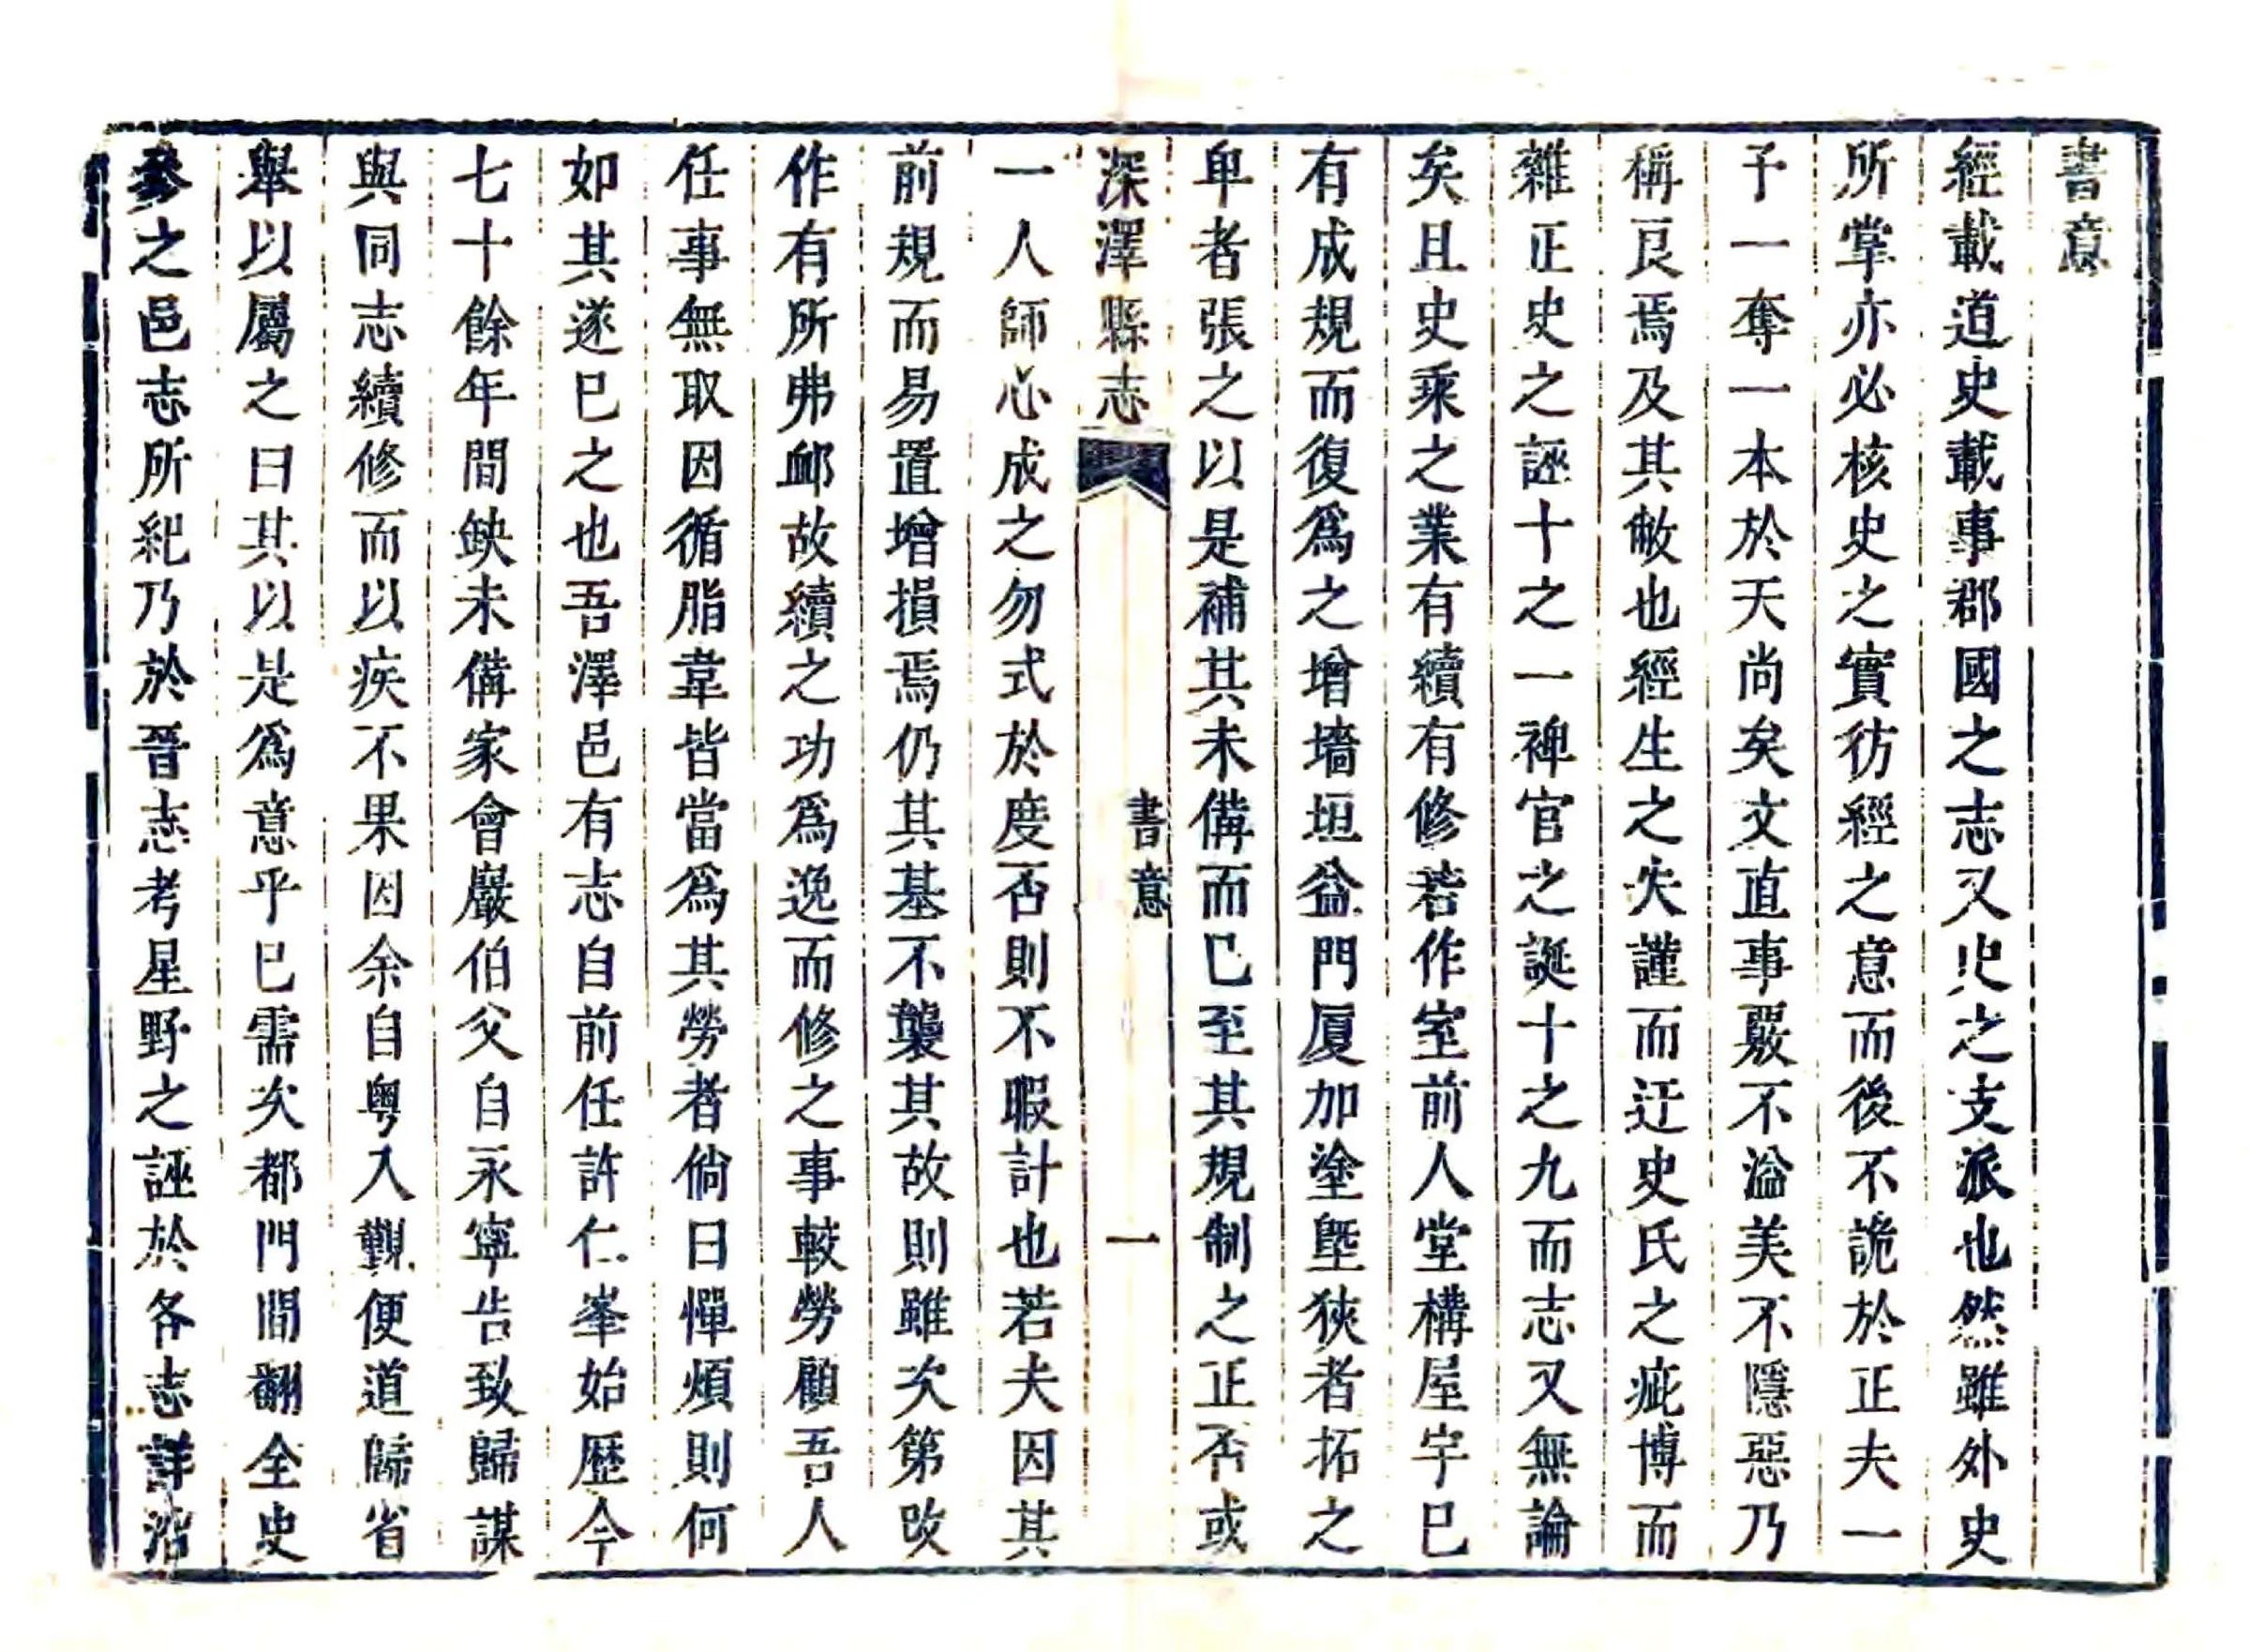 書意
經載道史載事郡國之志又史之支派也然雖外史
所掌亦必核史之實彷經之意而後不詭於正夫一
予一奪一本於天尚矣文直事嚴不溢美不隱惡乃
稱良焉及其敝也經生之失謹而迂史氏之疵博而
雜正史之誣十之一裨官之誕十之九而志又無論
矣且史乘之業有續有修若作室前人堂構屋宇已
有成規而復爲之增墻垣益門厦加塗塈狹者拓之
卑者張之以是補其未備而已至其規制之正否或
深澤縣志 書意 一
一人師心成之勿式於度否則不暇計也若夫因其
前規而易置增損焉仍其基不襲其故則雖次第改
作有所弗卹故續之功爲逸而修之事較勞顧吾人
任事無取因循脂韋皆當爲其勞者倘曰憚煩則何
如其遂已之也吾澤邑有志自前任許仁峯始歴今
七十餘年間缺未備家會巖伯父自永寧告致歸謀
與同志續修而以疾不果因余自粤入覲便道歸省
舉以屬之曰其以是爲意乎已需次都門間翻全史
參之邑志所紀乃於晉志考星野之誣於各志詳沿